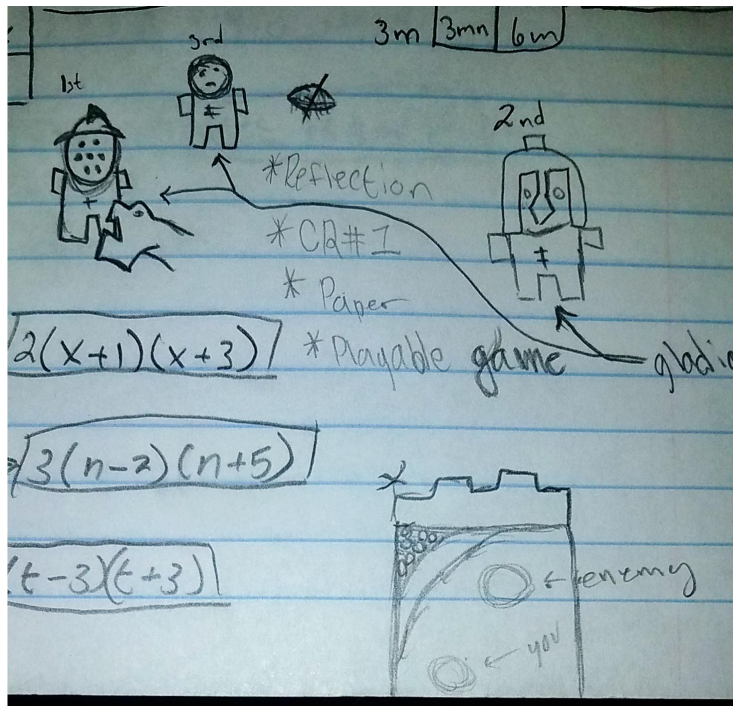 3m 3mn 6m
3rd
1st
2nd
*Reflection
*CR#1
*Paper
*Playable game
gladi
2(x+1)(x+3)
3(n-2)(n+5)
(t-3)(t+3)
←enemy
←you